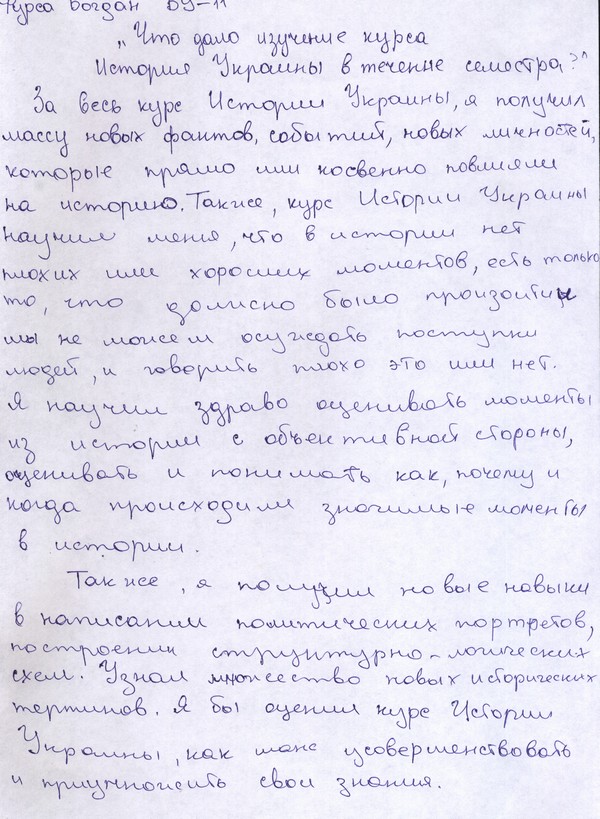 Курса Богдан БУ-11
„Что дало изучение курса
История Украины в течение семестра?"
За весь курс Истории Украины, я получил
массу новых фактов, событий, новых личностей,
которые прямо или косвенно повлияли
на историю. Также, курс Истории Украины
научил меня, что в истории нет
плохих или хороших моментов, есть только
то, что должно было произойти и
мы не можем осуждать поступки
людей, и говорить плохо это или нет.
Я научил здраво оценивать моменты
из истории с объективной стороны,
оценивать и понимать как, почему и
когда происходили значимые моменты
в истории.
Также, я получил новые навыки
в написании политических портретов,
построении структурно-логических
схем. Узнал множество новых исторических
терминов. Я бы оценил курс Истории
Украины, как шанс усовершенствовать
и приумножить свои знания.